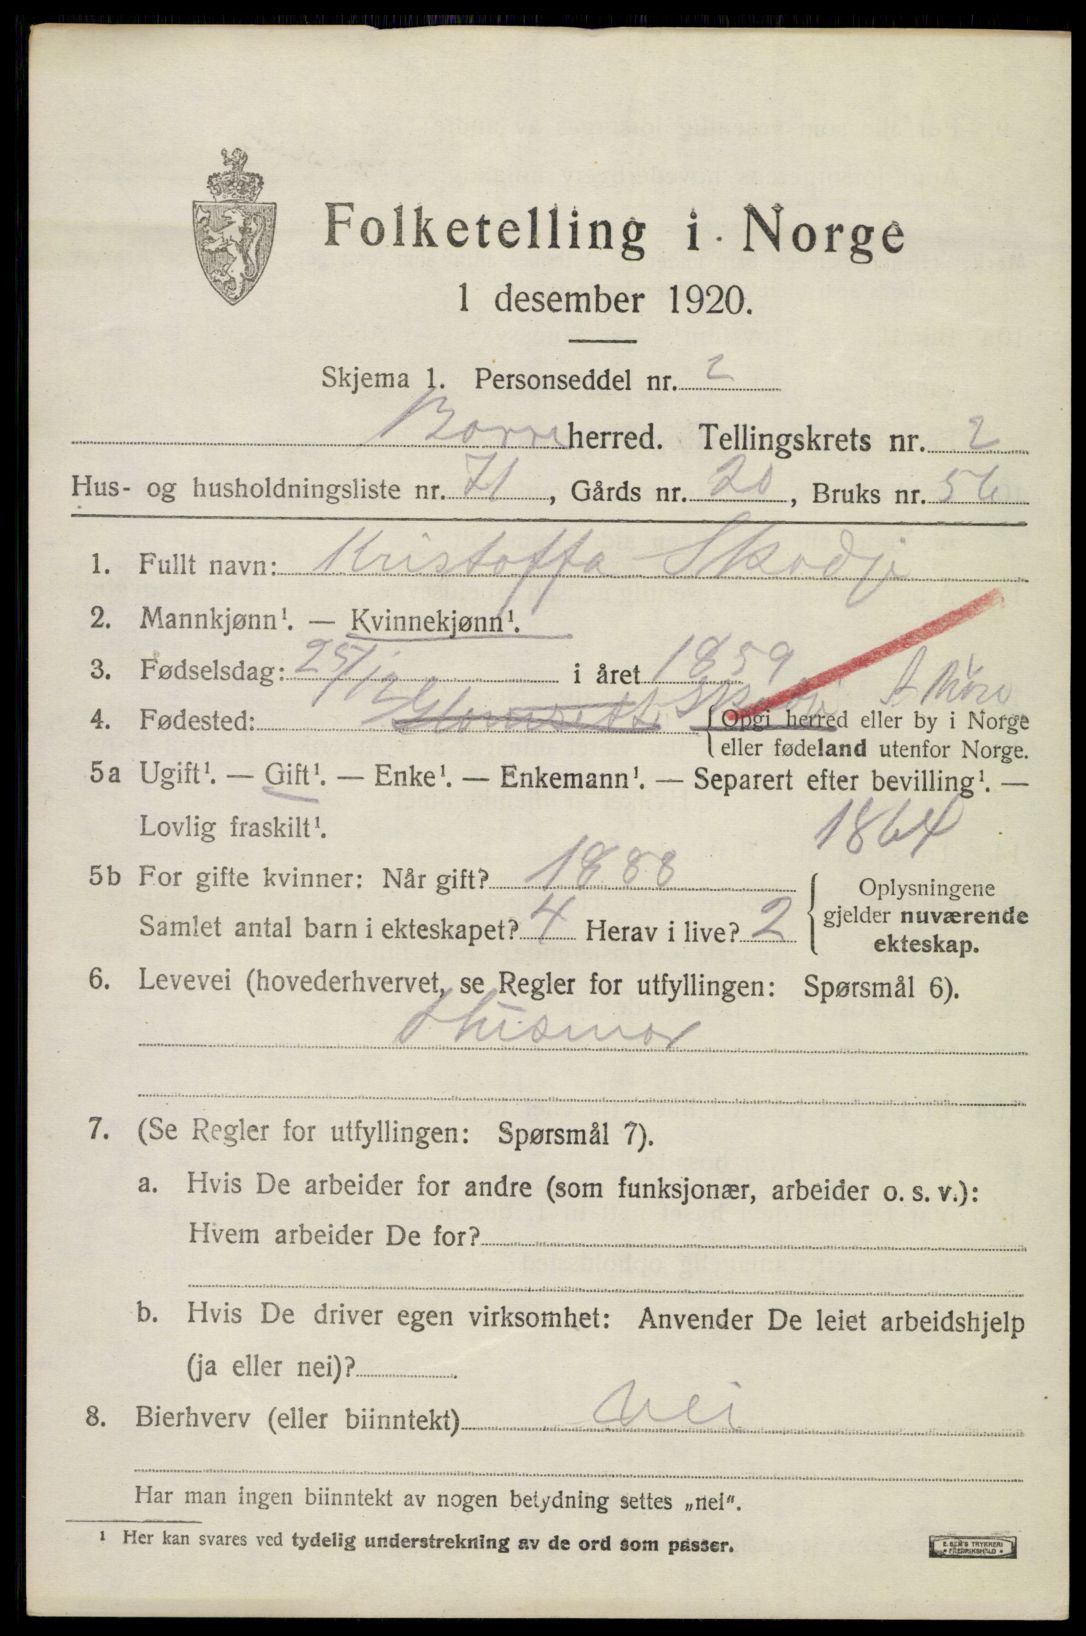 Folketelling i Norge
1 desember 1920.
Skjema 1. Personseddel nr. 2
Borre herred. Tellingskrets nr. 2
Hus- og husholdningsliste nr. 71, Gårds nr. 20, Bruks nr. 56
1. Fullt navn: Kristoffa Skodje
2. Mannkjønn¹. — Kvinnekjønn¹.
3. Fødselsdag: 25/12 i året 1859
4. Fødested: Skodje Møre
{ Opgi herred eller by i Norge
eller fødeland utenfor Norge.
5a Ugift¹. — Gift¹. — Enke¹. — Enkemann¹. — Separert efter bevilling¹. —
Lovlig fraskilt¹. 1864
5b For gifte kvinner: Når gift? 1888
Samlet antal barn i ekteskapet? 4 Herav i live? 2
{ Oplysningene
gjelder nuværende
ekteskap.
6. Levevei (hovederhvervet, se Regler for utfyllingen: Spørsmål 6).
Husmor
7. (Se Regler for utfyllingen: Spørsmål 7).
a. Hvis De arbeider for andre (som funksjonær, arbeider o. s. v.):
Hvem arbeider De for?
b. Hvis De driver egen virksomhet: Anvender De leiet arbeidshjelp
(ja eller nei)?
8. Bierhverv (eller biinntekt) Nei
Har man ingen biinntekt av nogen betydning settes „nei“.
¹ Her kan svares ved tydelig understrekning av de ord som passer.
E. SEM'S TRYKKERI
FREDRIKSHALD